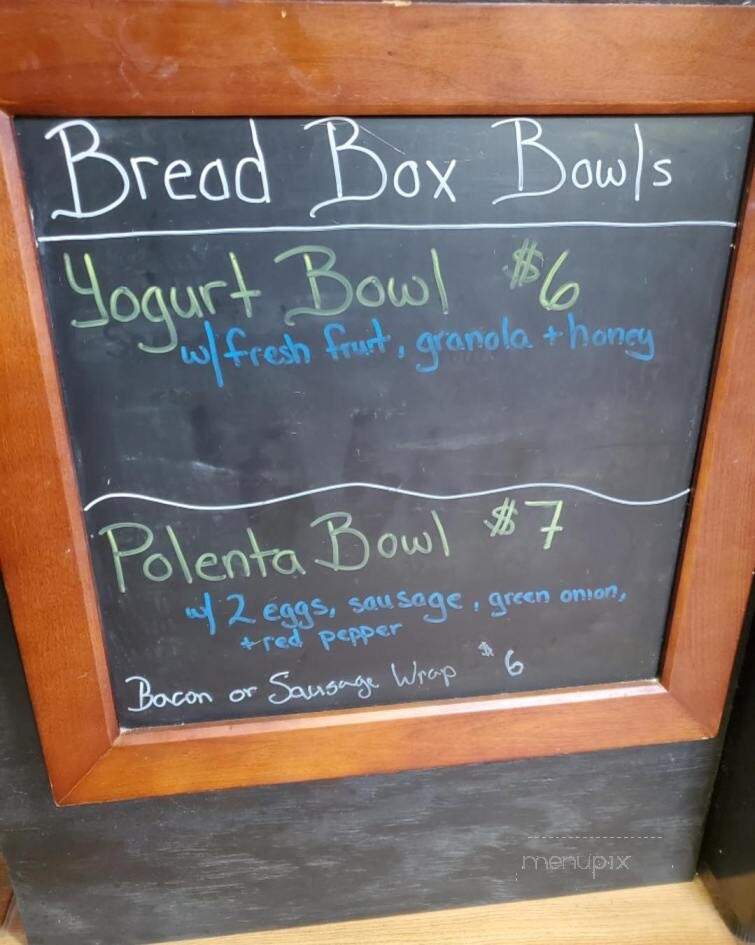 Bread Box Bowls
Yogurt Bowl $6
w/fresh fruit, granola + honey
Polenta Bowl $7
w/ 2 eggs, sausage, green onion,
+ red pepper
Bacon or Sausage Wrap $6
menupix